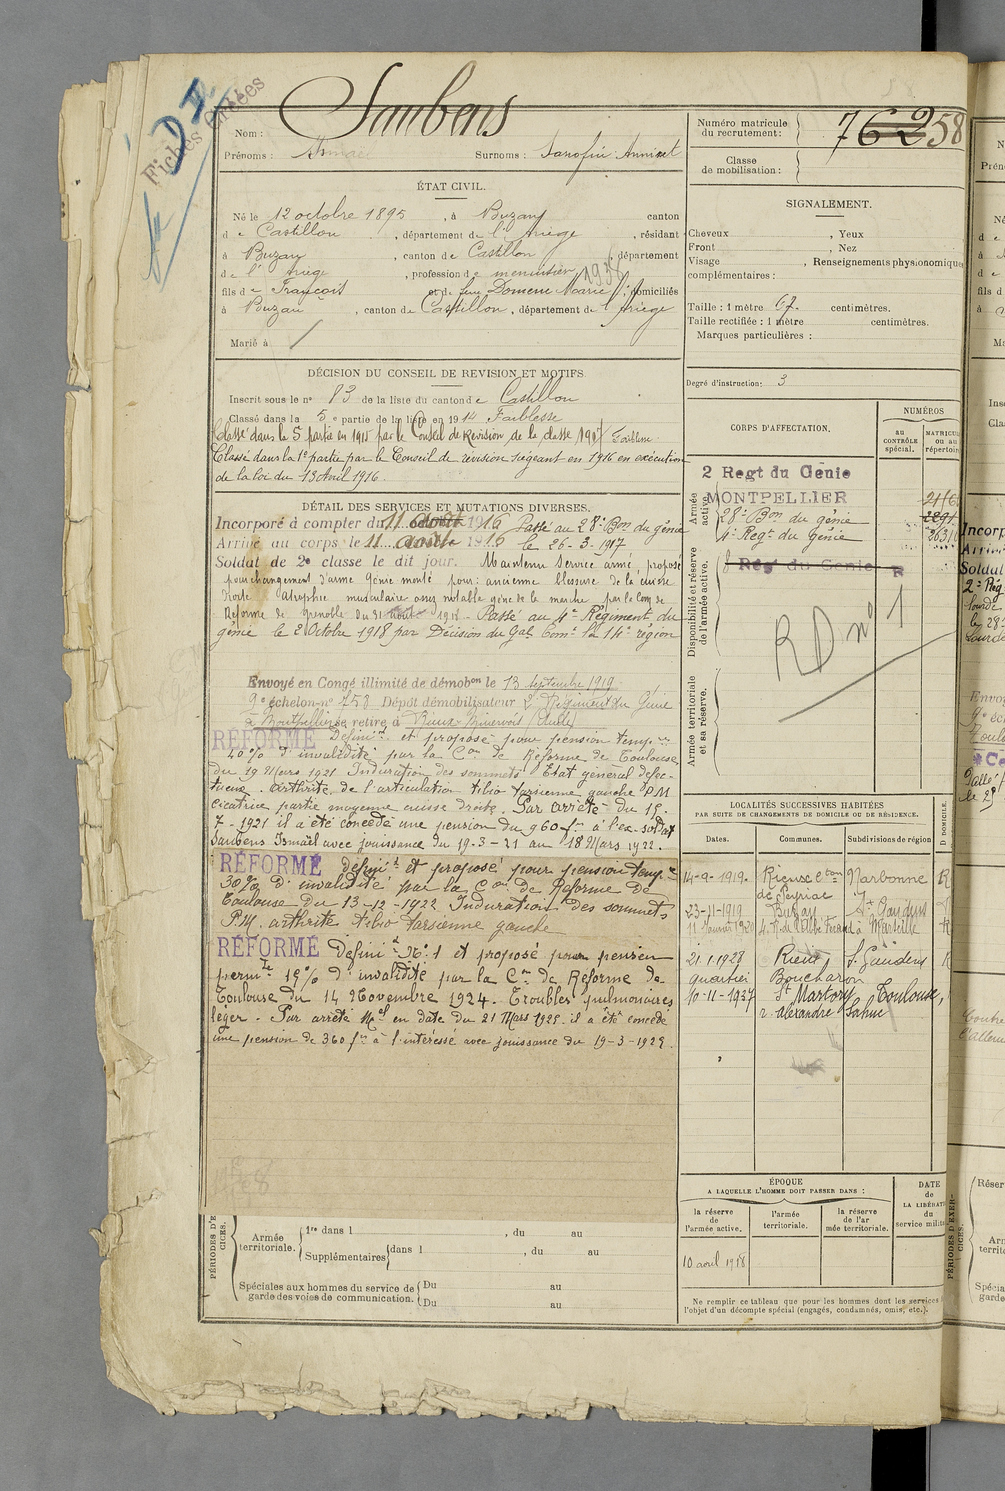 Fiches
Saubens
Nom :
Prénoms : Ismaël Surnoms :
Numéro matricule
du recrutement : 76258
Classe
de mobilisation :
ÉTAT CIVIL.
Né le 12 octobre 1895, à Buzan, canton
de Castillon, département de l'Ariège, résidant
à Buzan, canton de Castillon, département
de l'Ariège, profession de menuisier
fils de François et de feue Domenc Marie, domiciliés
à Buzan, canton de Castillon, département de l'Ariège
Marié à
SIGNALEMENT.
Cheveux , Yeux
Front , Nez
Visage , Renseignements physionomiques
complémentaires :
Taille : 1 mètre 67. centimètres.
Taille rectifiée : 1 mètre centimètres.
Marques particulières :
Degré d'instruction : 3
DÉCISION DU CONSEIL DE REVISION ET MOTIFS.
Inscrit sous le n° 83 de la liste du canton de Castillon
Classé dans la 5e partie de la liste en 1914 Faiblesse
Classé dans la 5 partie en 1915 par le Conseil de Revision de la classe 1917 Faiblesse
Classé dans la 1e partie par le Conseil de révision siégeant en 1916 en exécution
de la loi du 13 Avril 1916.
DÉTAIL DES SERVICES ET MUTATIONS DIVERSES.
Incorporé à compter du 11 août 1916 Passé au 28e Bon du génie
Arrivé au corps le 11 août 1916 le 26-3-1917
Soldat de 2e classe le dit jour. Maintenu Service armé, proposé
pour changement d'arme Génie monté pour : ancienne blessure de la cuisse
droite atrophie musculaire assez notable gêne de la marche par la Com de
Réforme de Grenoble du 31 août 1918 - Passé au 4e Régiment du
génie le 2 Octobre 1918 par Décision du Gal Comt la 14e région
Envoyé en Congé illimité de démobon le 13 septembre 1919
9e échelon n° 758 Dépôt démobilisateur 2e Régiment du Génie
à Montpellier se retire à Rieux Minervois (Aude)
RÉFORMÉ Définit et proposé pour pension tempre
20% d'invalidité par la Con de Réforme de Toulouse
du 19 Mars 1921 Induration des sommets Etat général défec-
tueux. arthrite de l'articulation tibio tarsienne gauche P.M
cicatrice partie moyenne cuisse droite. Par arrêté du 15-
7-1921 il a été concédé une pension du 960 frs à l'ex-soldat
Saubens Ismaël avec jouissance du 19-3-21 au 18 Mars 1922.
RÉFORMÉ définit et proposé pour pension tempre
30% d'invalidité par la Con de Réforme de
Toulouse du 13-12-1922 Induration des sommets
P.M. arthrite tibio tarsienne gauche
RÉFORMÉ Définit N°1 et proposé pour pension
permte 15% d'invalidité par la Con de Réforme de
Toulouse du 14 Novembre 1924. Troubles pulmonaires
léger. Par arrêté Mel en date du 21 Mars 1925 il a été concédé
une pension de 360 frs à l'intéressé avec jouissance du 19-3-1925.
CORPS D'AFFECTATION.
NUMÉROS
au
contrôle
spécial.
Armée
active.
2 Regt du Génie
MONTPELLIER
28e Bon du génie
4e Regt du génie
Disponibilité et réserve
de l'armée active.
Regt du Genie
RD n° 1
Armée territoriale
et sa réserve.
LOCALITÉS SUCCESSIVES HABITÉES
PAR SUITE DE CHANGEMENTS DE DOMICILE OU DE RÉSIDENCE.
Dates. Communes. Subdivisions de région
14-9-1919. Rieux con de Peyriac Narbonne R
23-11-1919 Buzan St Gaudens
à Marseille R
21.1.1928 St Gaudens
quartier Boucheron
10-11-1937 St Martory Toulouse,
r. Alexandre
ÉPOQUE
A LAQUELLE L'HOMME DOIT PASSER DANS :
la réserve
de
l'armée active.
l'armée
territoriale.
la réserve
de l'ar
mée territoriale.
DATE
de
LA LIBÉRAT
du
service milit
10 août 1918
PÉRIODES D'EXER-
CICES.
Armée
territoriale.
1re dans l , du au
Supplémentaires dans l , du au
Spéciales aux hommes du service de
garde des voies de communication.
Du au
Du au
Ne remplir ce tableau que pour les hommes dont les services
l'objet d'un décompte spécial (engagés, condamnés, omis, etc.).